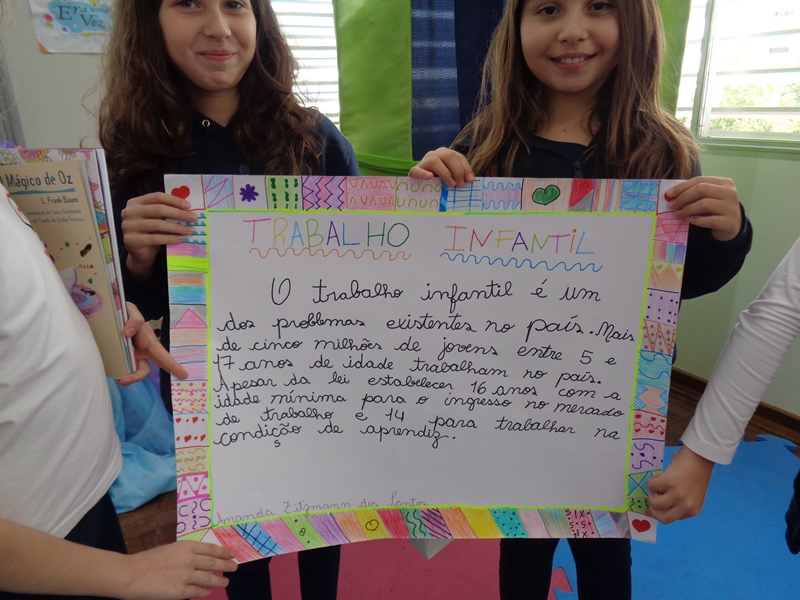 Era uma
Vez
Mágico de Oz
L. Frank Baum
TRABALHO INFANTIL
O trabalho infantil é um
dos problemas existentes no país. Mais
de cinco milhões de jovens entre 5 e
17 anos de idade trabalham no país.
Apesar da lei estabelecer 16 anos com a
idade mínima para o ingresso no mercado
de trabalho e 14 para trabalhar na
condisção de aprendiz.
Amanda Zitzmann dos Santos